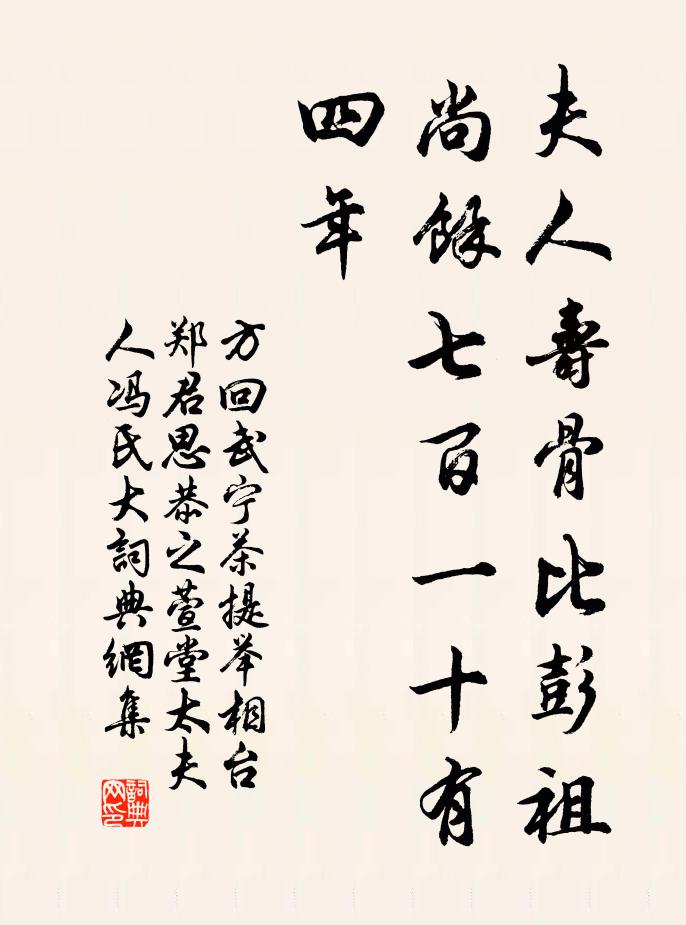 夫人壽骨比彭祖
尚餘七百一十有
四年
方回武宁茶提举相台
郑君思恭之萱堂太夫
人冯氏大詞典網集
詞典网印